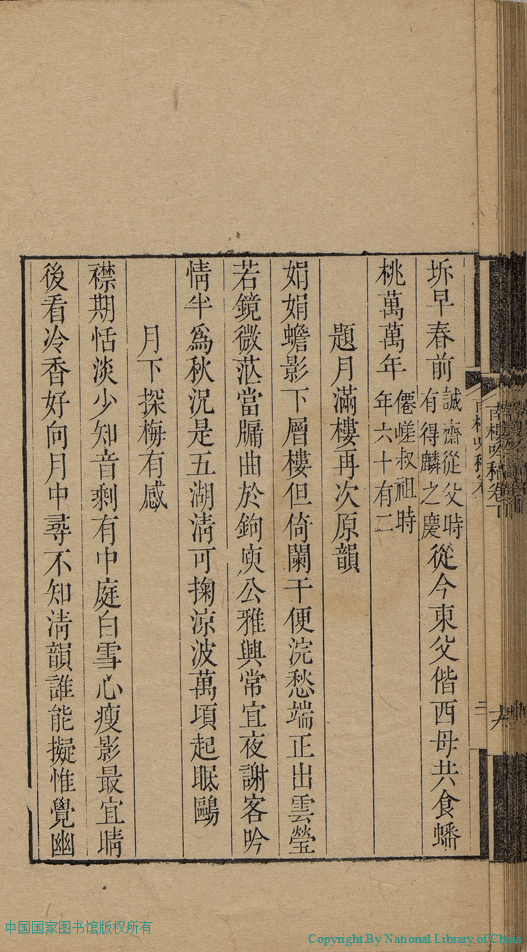 坼早春前誠齋從父時有得麟之慶從今東父偕西母共食蟠
桃萬萬年僊嵯叔祖時年六十有二
題月滿樓再次原韻
娟娟蟾影下層樓但倚闌干便浣愁端正出雲瑩
若鏡微茫當牖曲於鉤庾公雅興常宜夜謝客吟
情半爲秋況是五湖淸可掬涼波萬頃起眠鷗
月下探梅有感
襟期恬淡少知音剩有中庭白雪心瘦影最宜晴
後看冷香好向月中尋不知淸韻誰能擬惟覺幽
中国国家图书馆版权所有
Copyright By National Library of China